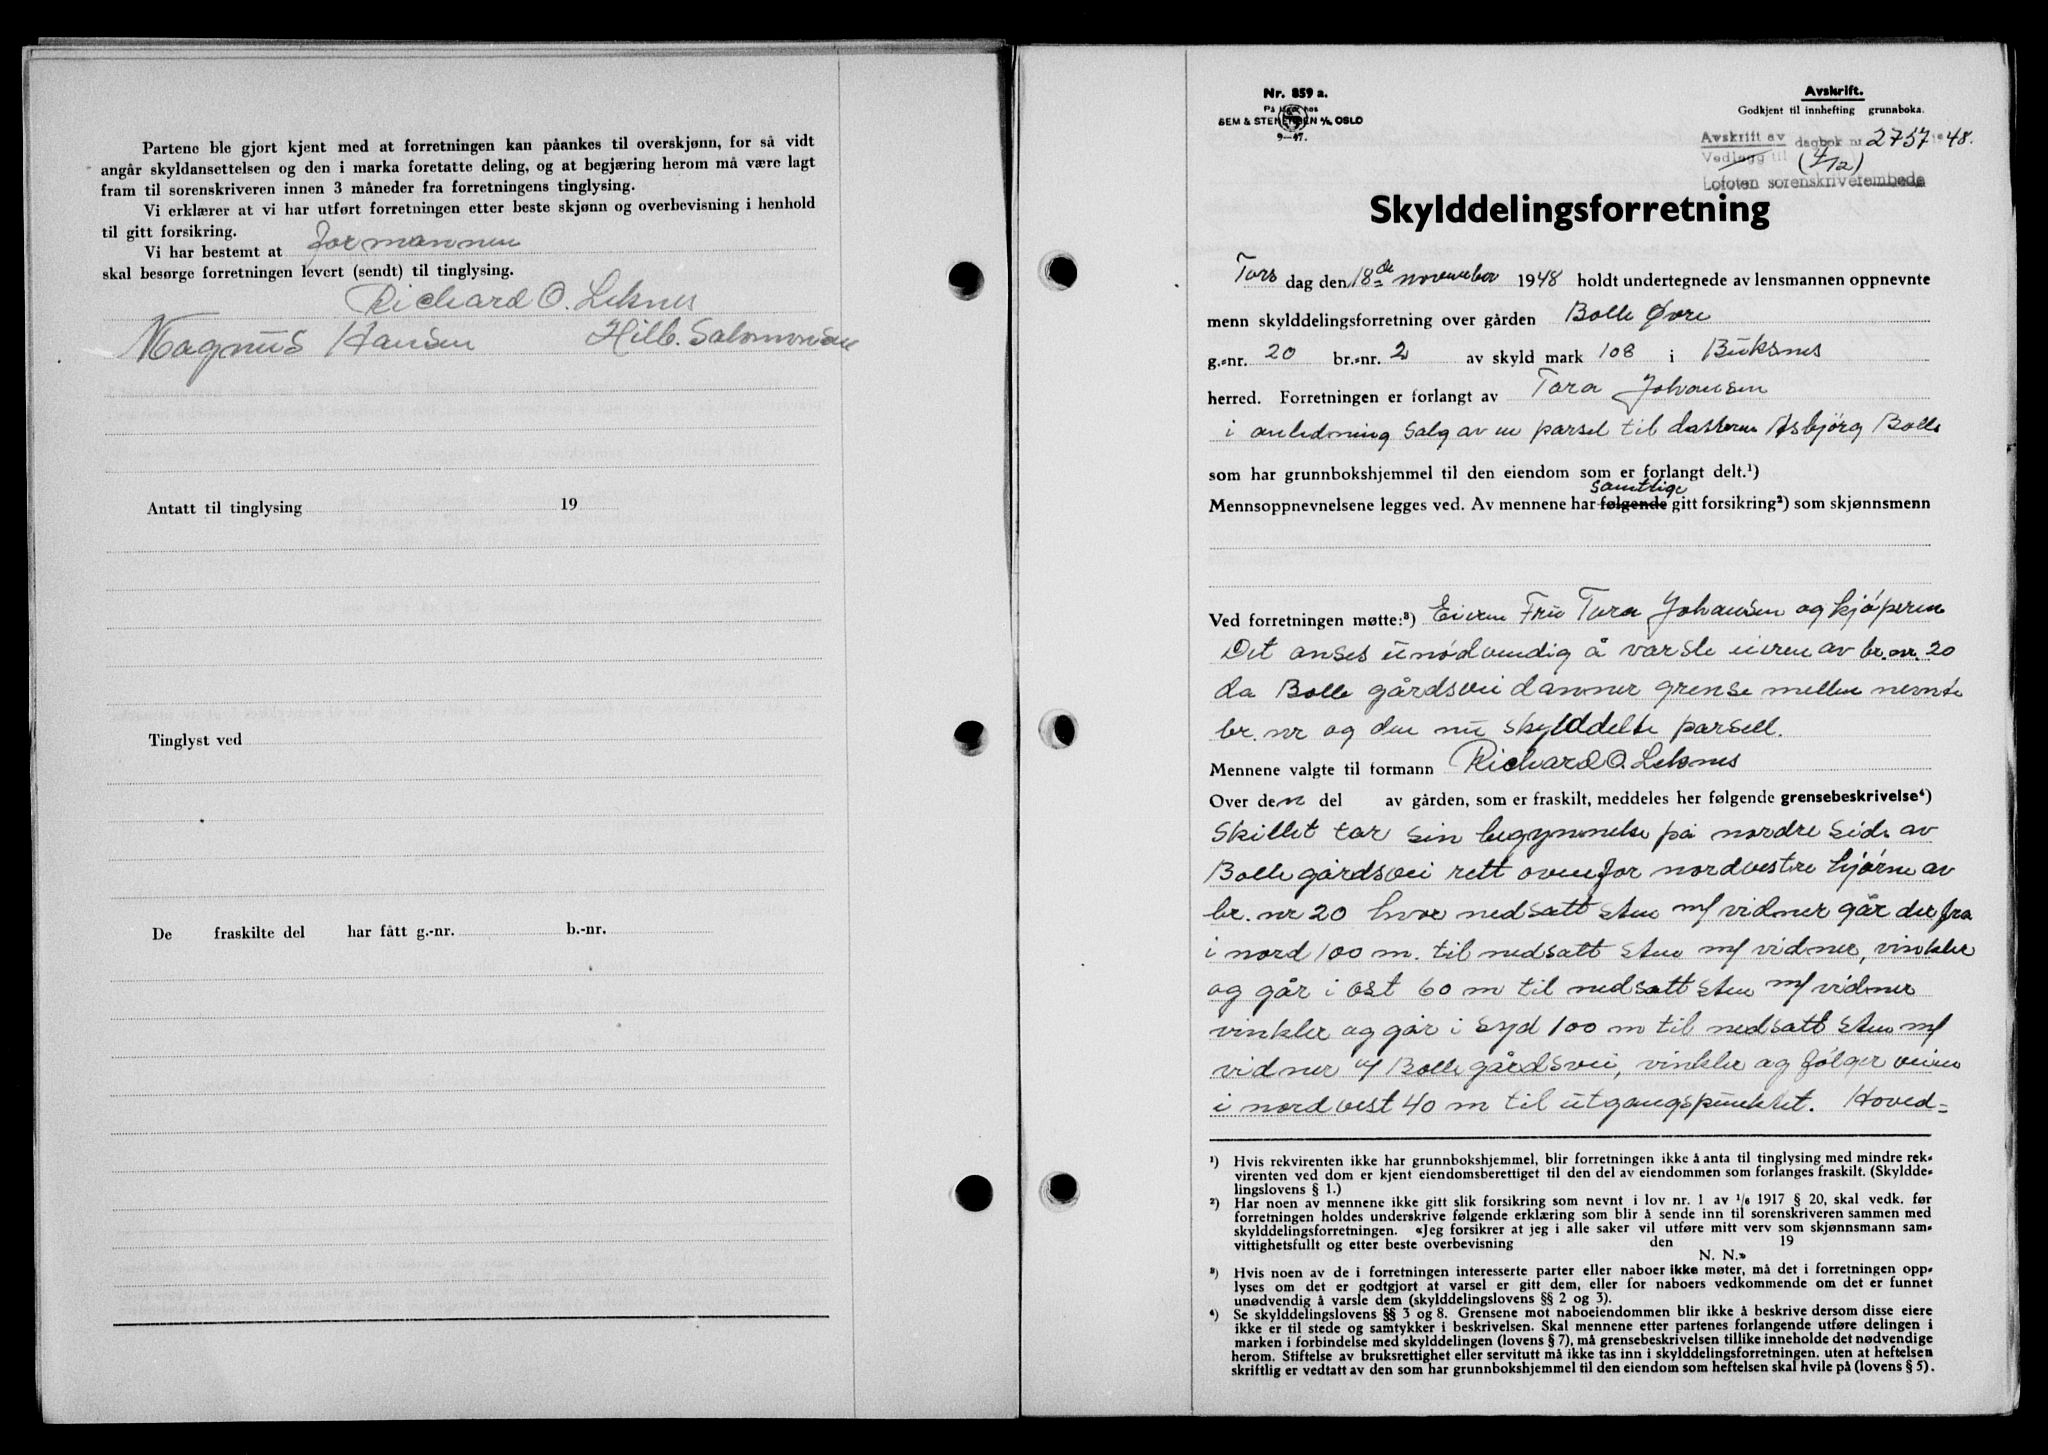 Partene ble gjort kjent med at forretningen kan påankes til overskjønn, for så vidt
angår skyldansettelsen og den i marka foretatte deling, og at begjæring herom må være lagt
fram til sorenskriveren innen 3 måneder fra forretningens tinglysing.
Vi erklærer at vi har utført forretningen etter beste skjønn og overbevisning i henhold
til gitt forsikring.
Vi har bestemt at formannen
skal besørge forretningen levert (sendt) til tinglysing.
Richard O. Leknes
Magnus Hansen Hilb. Salomonsen
Antatt til tinglysing 19
Tinglyst ved
De fraskilte del har fått g.-nr. b.-nr.
Nr. 859 a.
På lager hos
SEM & STENERSEN A/S, OSLO
9—47.
Avskrift.
Godkjent til innhefting grunnboka.
Avskrift av dagbok nr. 2757 19 48.
Vedlegg til (4/12)
Lofoten sorenskriverembede
Skylddelingsforretning
Tors dag den 18de november 1948 holdt undertegnede av lensmannen oppnevnte
menn skylddelingsforretning over gården Bolle Øvre
g.-nr. 20 br.-nr. 2 av skyld mark 108 i Buksnes
herred. Forretningen er forlangt av Tora Johansen
i anledning salg av en parsel til datteren Asbjörg Bolle
som har grunnbokshjemmel til den eiendom som er forlangt delt.¹)
samtlige
Mennsoppnevnelsene legges ved. Av mennene har følgende gitt forsikring²) som skjønnsmenn
Ved forretningen møtte:³) Eieren Fru Tora Johansen og kjøperen
Det anses unødvendig å varsle eieren av br. nr. 20
da Bolle gårdsvei danner grense mellem nevnte
br. nr og den nu skylddelte parsell.
Mennene valgte til formann Richard O. Leknes
Over den del av gården, som er fraskilt, meddeles her følgende grensebeskrivelse⁴)
Skillet tar sin begynnelse på nordre side av
Bolle gårdsvei rett ovenfor nordvestre hjørne av
br. nr 20 hvor nedsatt sten m/ vidner går derfra
i nord 100 m. til nedsatt sten m/ vidner, vinkler
og går i øst 60 m til nedsatt sten m/ vidner
vinkler og går i syd 100 m til nedsatt sten m/
vidner v/ Bolle gårdsvei, vinkler og følger veien
i nordvest 40 m til utgangspunktet. Hoved=
¹) Hvis rekvirenten ikke har grunnbokshjemmel, blir forretningen ikke å anta til tinglysing med mindre rek-
virenten ved dom er kjent eiendomsberettiget til den del av eiendommen som forlanges fraskilt. (Skyldde-
lingslovens § 1.)
²) Har noen av mennene ikke gitt slik forsikring som nevnt i lov nr. 1 av 1/6 1917 § 20, skal vedk. før
forretningen holdes underskrive følgende erklæring som blir å sende inn til sorenskriveren sammen med
skylddelingsforretningen. «Jeg forsikrer at jeg i alle saker vil utføre mitt verv som skjønnsmann sam-
vittighetsfullt og etter beste overbevisning den 19
N. N.»
³) Hvis noen av de i forretningen interesserte parter eller naboer ikke møter, må det i forretningen opp-
lyses om det er godtgjort at varsel er gitt dem, eller for naboers vedkommende om det er funnet
unødvendig å varsle dem (skylddelingslovens §§ 2 og 3).
⁴) Se skylddelingslovens §§ 3 og 8. Grensene mot naboeiendommen blir ikke å beskrive dersom disse eiere
ikke er til stede og samtykker i beskrivelsen. Skal mennene etter partenes forlangende utføre delingen i
marken i forbindelse med skylddelingen (lovens § 7), må grensebeskrivelsen tillike inneholde det nødvendige
herom. Stiftelse av bruksrettighet eller servitutt må ikke tas inn i skylddelingsforretningen. uten at heftelsen
skriftlig er vedtatt av den som har grunnbokshjemmel til den eiendom som heftelsen skal hvile på (lovens § 5).